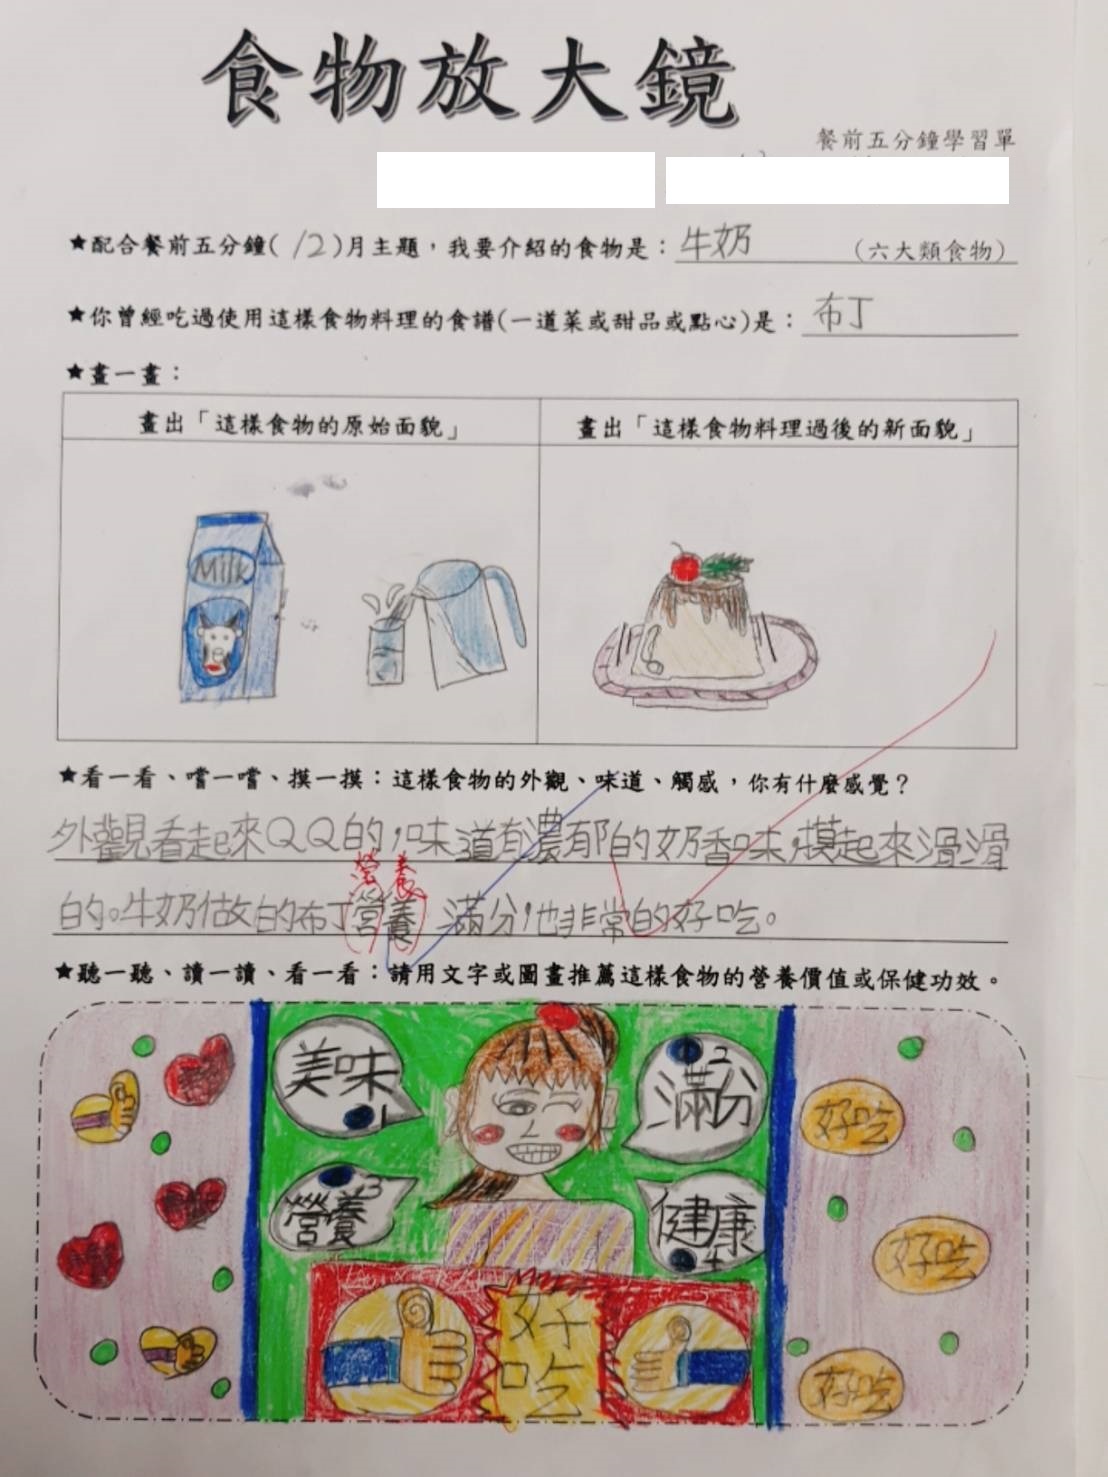 食物放大鏡
餐前五分鐘學習單
★配合餐前五分鐘(12)月主題，我要介紹的食物是：牛奶（六大類食物）
★你曾經吃過使用這樣食物料理的食譜(一道菜或甜品或點心)是：布丁
★畫一畫：
畫出「這樣食物的原始面貌」
畫出「這樣食物料理過後的新面貌」
Milk
★看一看、嚐一嚐、摸一摸：這樣食物的外觀、味道、觸感，你有什麼感覺？
外觀看起來QQ的，味道有濃郁的奶香味，摸起來滑滑
營養
的。牛奶做的布丁營養滿分，也非常的好吃。
★聽一聽、讀一讀、看一看：請用文字或圖畫推薦這樣食物的營養價值或保健功效。
美味
1
2
滿分
3
營養
健康
4
好吃
好吃
好吃
好吃